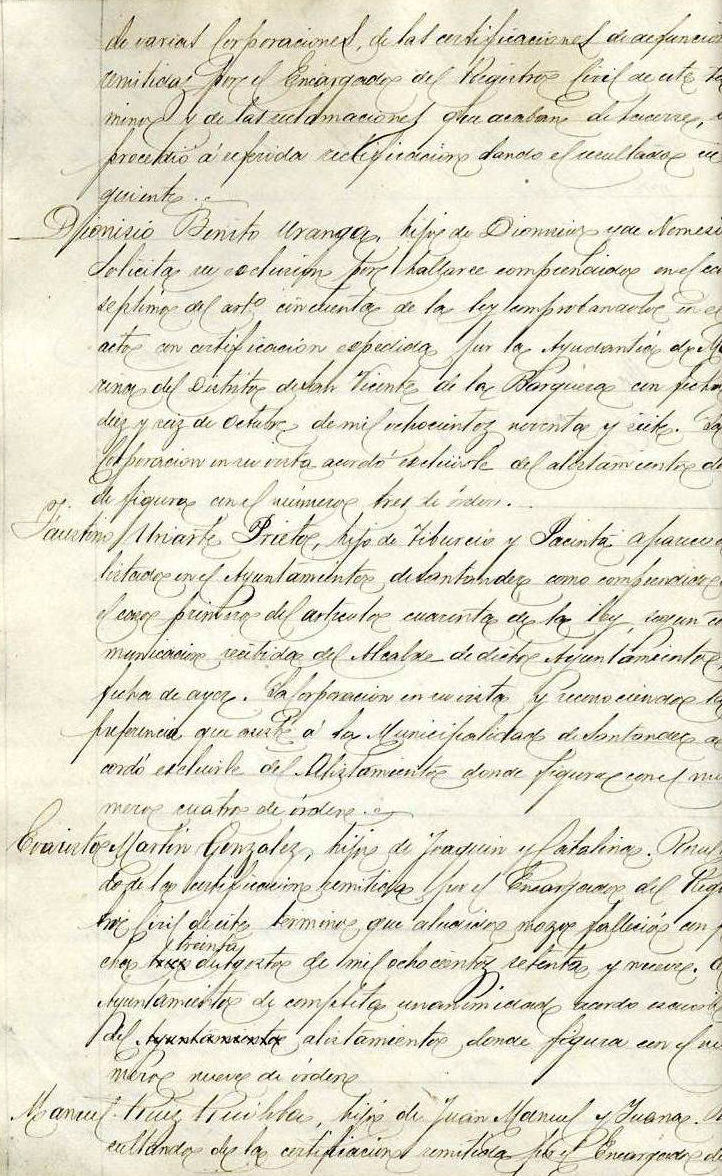 de varias Corporaciones, de las certificaciones de defuncio
remitidas por el Encargado del Registro Civil de este te
mino y de las reclamaciones que acaban de hacerse,
procedió á referida rectificacion dando el resultado si
guiente.
Dionisio Benito Uranga, hijo de Dionisio y de Nemesi
Solicita su exclusión por hallarse comprendido en el ca
septimo del artº cincuenta de la ley comprobandolo en el
acto con certificacion espedida por la Ayudantia de Ma
rina del Distrito de San Vicente de la Barquera con fecha
diez y seis de Octubre de mil ochocientos noventa y siete. La
Corporacion en su vista acordó escluirle del alistamiento do
de figura con el número tres de órden.
Faustino Uriarte Prieto, hijo de Tiburcio y Jacinta aparece a
listado en el Ayuntamiento de Santander, como comprendido e
el caso primero del artículo cuarenta de la ley, segun co
municacion recibida del Alcalde de dicho Ayuntamiento
fecha de ayer. La Corporacion en su vista y reconociendo la
preferencia que asiste á la Municipalidad de Santander a
cordó escluirle del Alistamiento donde figura con el nú
mero cuatro de órden.
Evaristo Martin Gonzalez, hijo de Joaquin y Catalina. Resul
do de la certificacion remitida por el Encargado del Regis
tro Civil de este termino, que aludido mozo falleció con fe
cha treinta de Agosto de mil ochocientos setenta y nueve. El
Ayuntamiento de completa unanimidad acordo escluirle
del Ayuntamiento alistamiento donde figura con el nú
mero nueve de órden
Manuel Ruiz hijo de Juan Manuel y Juana. Re
sultando de la certificacion remitida por el Encargado de